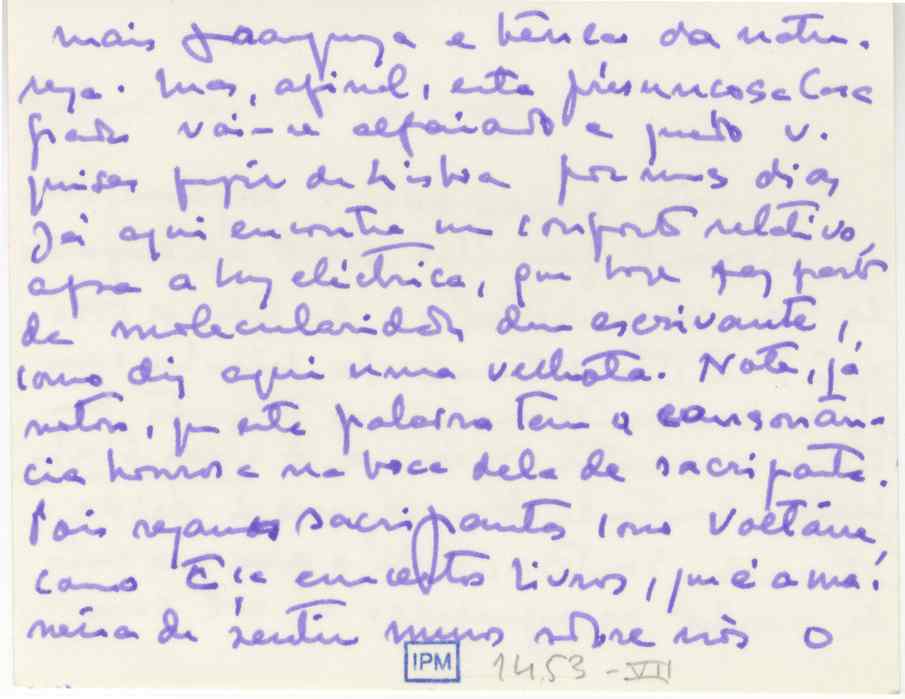 mais e bênçãos da natu-
reza. Mas, afinal, esta Casa
vai-se alfaiando e quando v.
quiser fugir de Lisboa por uns dias
Já aqui encontra um conforto relativo,
afora a luz eléctrica, que hoje faz parte
da molecularidade dum escrivante,
como diz aqui uma velhota. Note, já
notou, que esta palavra tem a consonân-
cia honrosa na boca dela de sacripante.
Pois sejamos sacripantes como Voltaire,
como Eça em certos livros, que é a ma-
neira de sentir menos sobre nós o
IPM 1453-VII